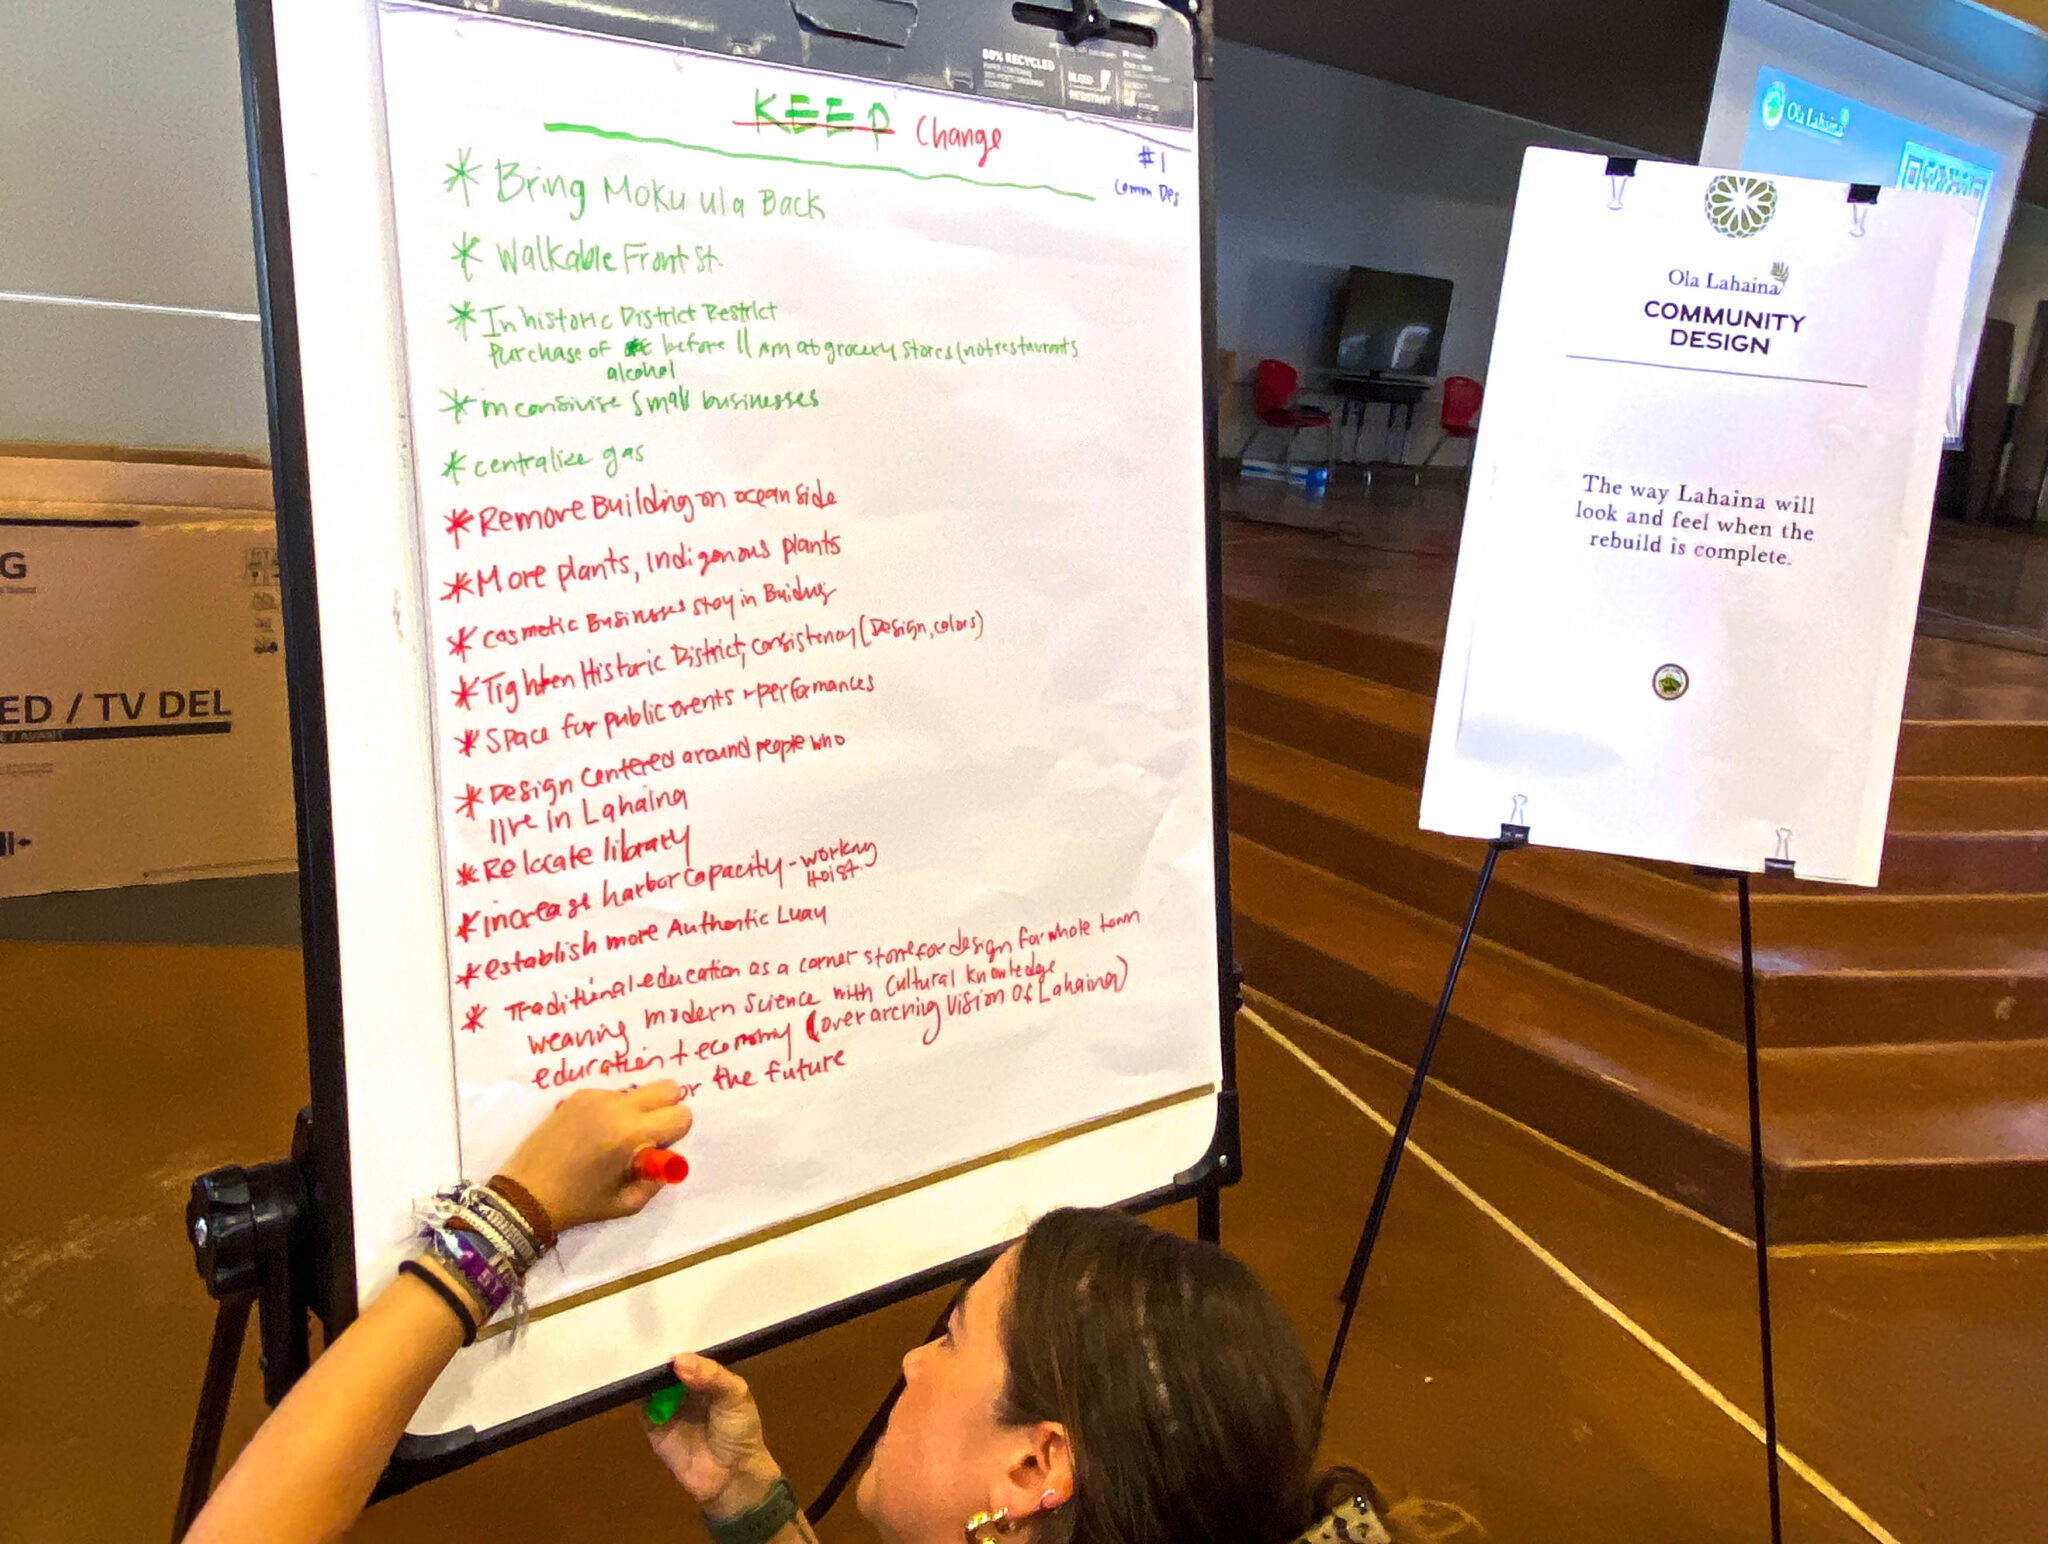 80% RECYCLED
BLEED
RESISTANT
KEEP Change
#1
Comm Des
* Bring Moku ula Back
* Walkable Front St.
* In historic District Restrict
Purchase of before 11 Am at grocery stores (not restaurants
alcohol
* small businesses
* centralize gas
* Remove Building on ocean side
* More plants, Indigenous plants
* cosmetic Businesses stay in
* Tighten Historic District, consistency (Design, colors)
* Space for public events + performances
* Design centered around people who
live in Lahaina
* Relocate library
* increase harbor capacity - working
Hoist.
* establish more Authentic Luau
* Traditional education as a corner stone for design for whole town
weaving modern science with cultural knowledge
education + economy (over arching vision of Lahaina)
or the future
G
ED / TV DEL
Ola Lahaina
Ola Lahaina
COMMUNITY
DESIGN
The way Lahaina will
look and feel when the
rebuild is complete.